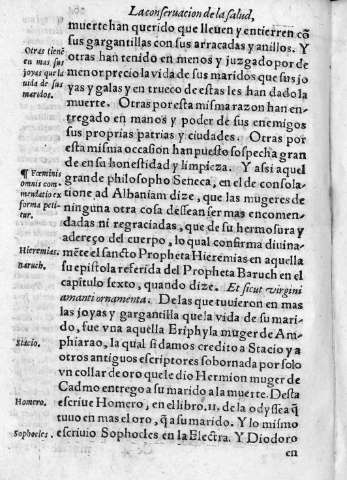 La conseruacion de la salud,
muerte han querido que lleuen y entierren cō
sus gargantillas con sus arracadas y anillos. Y
otras han tenido en menos y juzgado por de
menor precio la vida de sus maridos que sus jo
yas y galas y en trueco de estas les han dado la
muerte. Otras por esta misma razon han en-
tregado en manos y poder de sus enemigos
sus proprias patrias y ciudades. Otras por
esta misma occasion han puesto sospecha gran
de en su honestidad y limpieza. Y assi aquel
grande philosopho Seneca, en el de consola
tione ad Albaniam dize, que las mugeres de
ninguna otra cosa dessean ser mas encomen-
dadas ni regraciadas, que de su hermosura y
adereço del cuerpo, lo qual confirma diuina-
mēte el sancto Propheta Hieremias en aquella
su epistola referida del Propheta Baruch en el
capitulo sexto, quando dize. Et sicut virgini
amanti ornamenta. De las que tuuieron en mas
las joyas y gargantilla que la vida de su mari-
do, fue vna aquella Eriphyla muger de Am-
phiarao, la qual si damos credito a Stacio y a
otros antiguos escriptores sobornada por solo
vn collar de oro que le dio Hermion muger de
Cadmo entrego a su marido a la muerte. Desta
escriue Homero, en el libro. 11. de la odyssea q̄
tuuo en mas el oro, q̄ a su marido. Y lo mismo
escriuio Sophocles en la Electra. Y Diodoro
en
Otras tienē
en mas sus
joyas que la
vida de sus
maridos.
¶ Fœminis
omnis com-
mendatio ex
forma peti-
tur.
Hieremias.
Baruch.
Stacio.
Homero.
Sophocles.